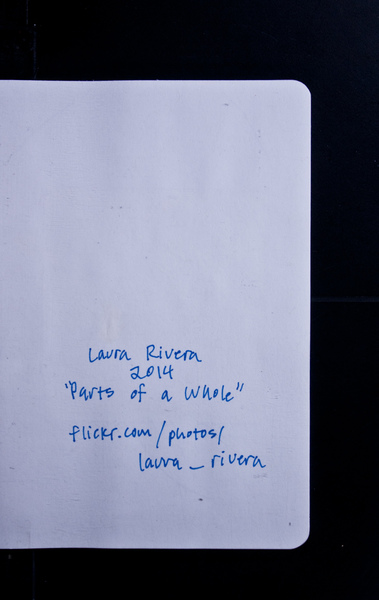 Laura Rivera
2014
"Parts of a Whole"
flickr.com/photos/
laura_rivera